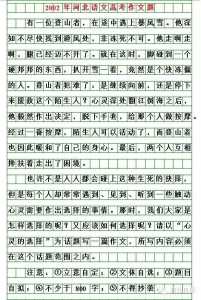 2002年河北语文高考作文题
有一位登山者，在途中遇上暴风雪。他深
知不尽快找到避风处，非冻死不可。他走啊走
啊，腿已经迈不开了。就在这时，脚碰到一个
硬邦邦的东西，扒开雪一看，竟然是个快冻僵
的人。登山者犯难了：是继续向前，还是停下
来援救这个陌生人？心灵深处翻江倒海之后，
他毅然作出决定，脱下手套，给那个人做按摩。
经过一番按摩，陌生人可以活动了，而登山者
也因此暖和了自己的身心。最后，两个人互相
搀扶着走出了困境。
也许不是人人都会碰上这种生死的抉择，
但是每个人却常常遇到、见到、听到一些触动
心灵需要作出选择的事情。那时，我们大家是
怎样选择的呢？又应该如何选择呢？请以“心
灵的选择”为话题写一篇作文，所写内容必须
在这个话题范围之内。
注意：①立意自定；②文体自选；③题目
自拟；④不少于800字；⑤不得抄袭。